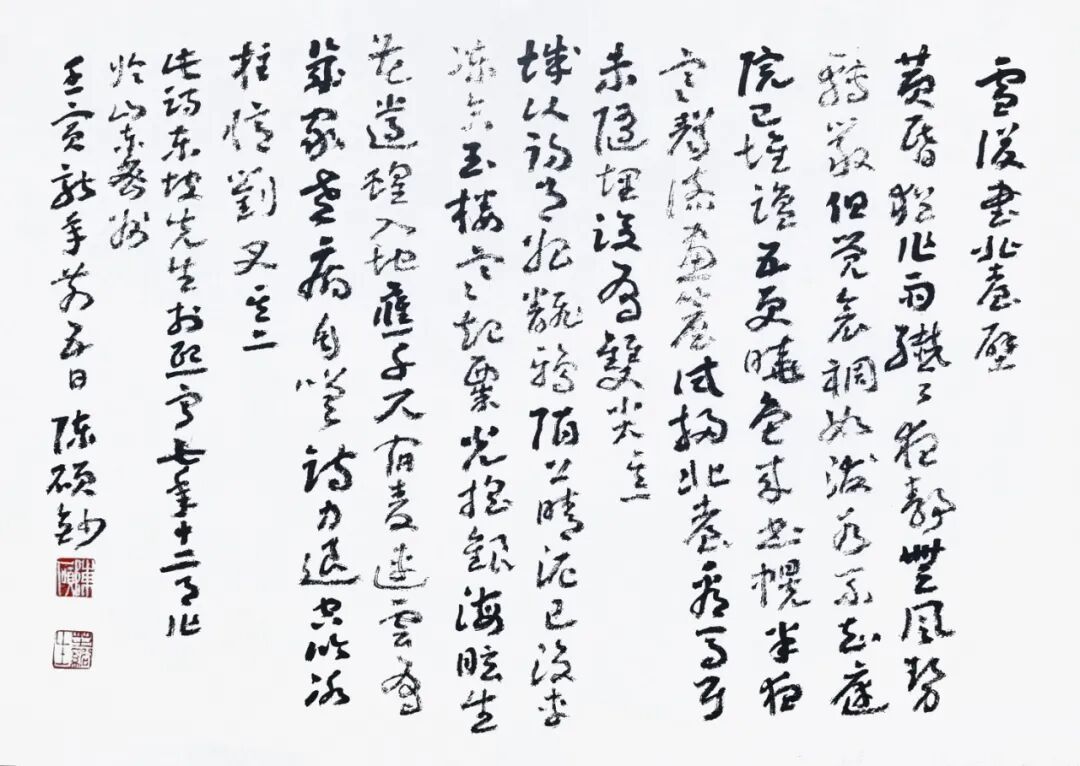 雪後書北臺壁
黃昏猶作雨纖々夜靜無風勢
轉嚴但覺衾裯如潑水不知庭
院已堆鹽五更曉色來書幌半夜
寒聲落畫簷試掃北臺看馬耳
未隨埋沒有雙尖其一
城頭初日始翻鴉陌上晴泥已沒車
凍合玉樓寒起粟光搖銀海眩生
花遺蝗入地應千尺宿麥連雲有
幾家老病自嗟詩力退空吟冰
柱憶劉叉其二
此詩東坡先生於熙寧七年十二月作
於山東密州
壬寅新年前五日陳碩鈔
陳碩